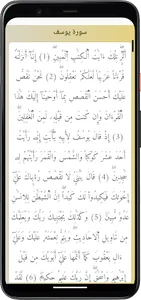 سورة يوسف
الٓر ۚ تِلْكَ ءَايَٰتُ ٱلْكِتَٰبِ ٱلْمُبِينِ (1) إِنَّآ أَنزَلْنَٰهُ
قُرْءَٰنًا عَرَبِيًّا لَّعَلَّكُمْ تَعْقِلُونَ (2) نَحْنُ نَقُصُّ
عَلَيْكَ أَحْسَنَ ٱلْقَصَصِ بِمَآ أَوْحَيْنَآ إِلَيْكَ هَٰذَا
ٱلْقُرْءَانَ وَإِن كُنتَ مِن قَبْلِهِۦ لَمِنَ ٱلْغَٰفِلِينَ
(3) إِذْ قَالَ يُوسُفُ لِأَبِيهِ يَٰٓأَبَتِ إِنِّى رَأَيْتُ
أَحَدَ عَشَرَ كَوْكَبًا وَٱلشَّمْسَ وَٱلْقَمَرَ رَأَيْتُهُمْ لِى
سَٰجِدِينَ (4) قَالَ يَٰبُنَىَّ لَا تَقْصُصْ رُءْيَاكَ عَلَىٰٓ
إِخْوَتِكَ فَيَكِيدُوا۟ لَكَ كَيْدًا ۖ إِنَّ ٱلشَّيْطَٰنَ لِلْإِنسَٰنِ
عَدُوٌّ مُّبِينٌ (5) وَكَذَٰلِكَ يَجْتَبِيكَ رَبُّكَ وَيُعَلِّمُكَ
مِن تَأْوِيلِ ٱلْأَحَادِيثِ وَيُتِمُّ نِعْمَتَهُۥ عَلَيْكَ وَعَلَىٰٓ
ءَالِ يَعْقُوبَ كَمَآ أَتَمَّهَا عَلَىٰٓ أَبَوَيْكَ مِن قَبْلُ
إِبْرَٰهِيمَ وَإِسْحَٰقَ ۚ إِنَّ رَبَّكَ عَلِيمٌ حَكِيمٌ (6) لَّقَدْ